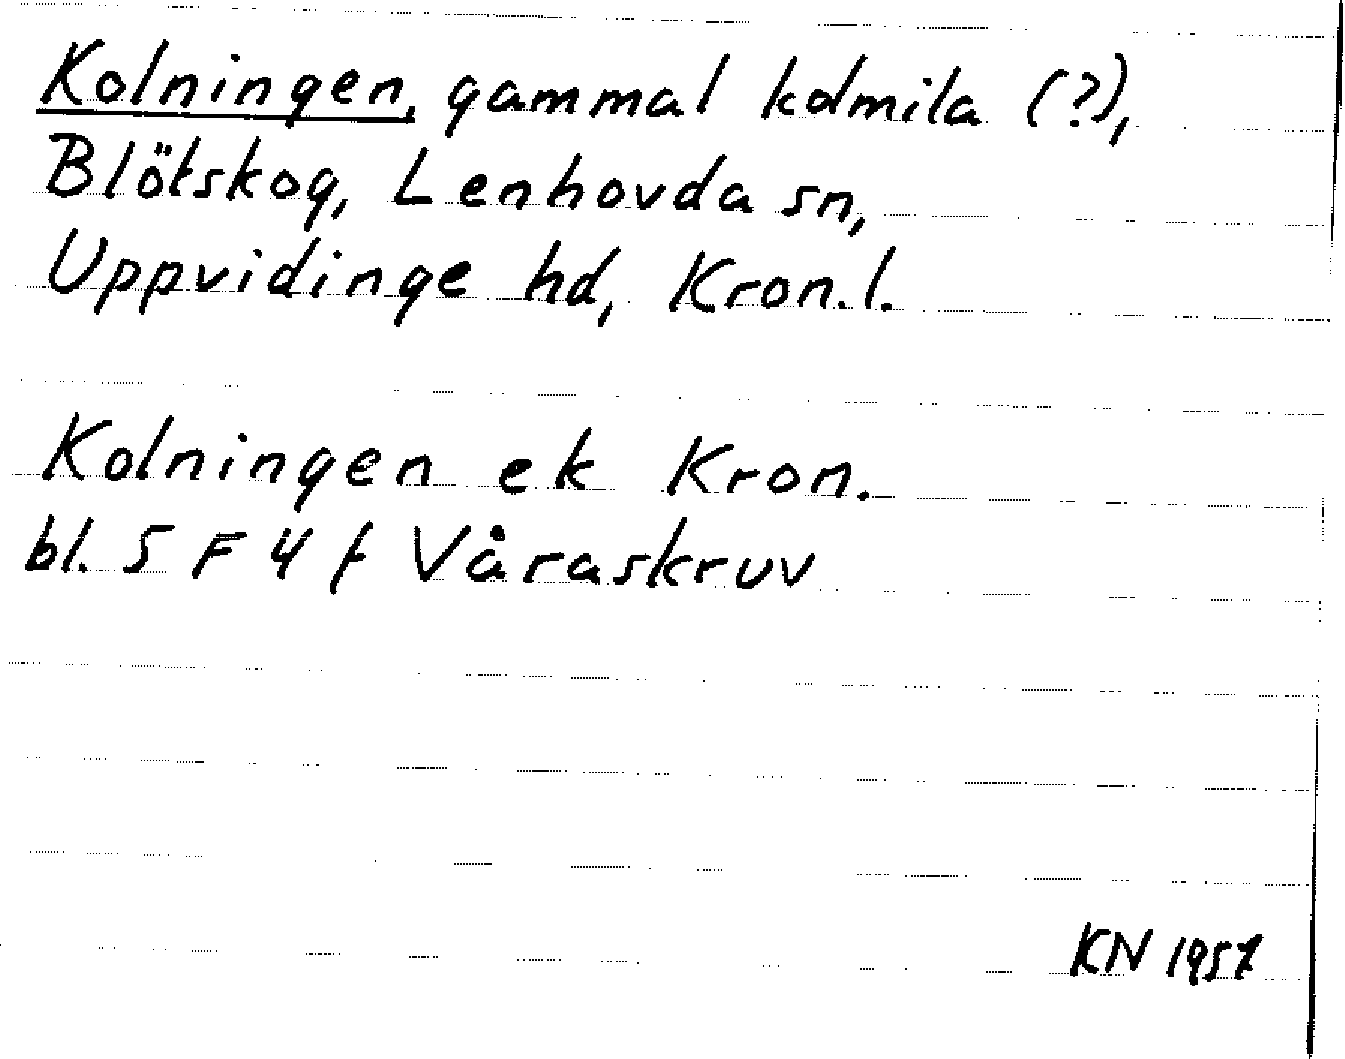 Kolningen, gammal kolmila (?),
Blötskog, Lenhovda sn,
Uppvidinge hd, Kron.l.
Kolningen ek Kron.
bl. 5 F 4 f Våraskruv
KN 1957